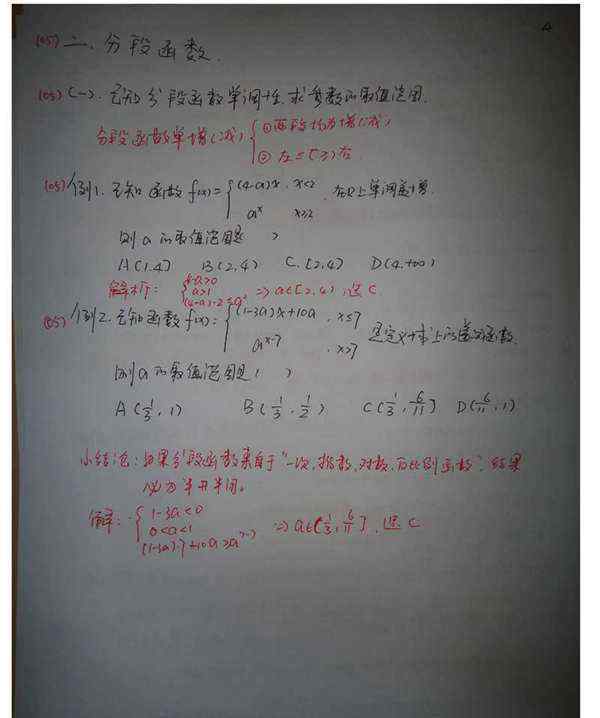 4
(05) 二、分段函数.
(05) (一). 已知分段函数单调性,求参数的取值范围.
分段函数单增(减) { ①两段均为增(减)
② 左≤(≥)右.
(05) 例1. 已知函数 f(x)= { (4-a)x, x<2 在R上单调递增.
a^x x≥2
则a的取值范围是( )
A (1,4] B (2,4) C. [2,4) D (4,+∞)
解析: { 4-a>0
a>1
(4-a)·2≤a² ⇒ a∈[2,4) 选C
(05) 例2. 已知函数 f(x)= { (1-3a)x+10a, x≤7 是定义域上的递减函数.
a^{x-7}, x>7
则a的取值范围是( )
A (1/3, 1) B (1/3, 1/2) C (1/3, 6/11] D (6/11, 1)
小结论: 如果分段函数来自于"一次,指数,对数,反比例函数",结果
必为半开半闭.
解: { 1-3a<0
0<a<1
(1-3a)·7+10a≥a^{7-7} ⇒ a∈(1/3, 6/11], 选C